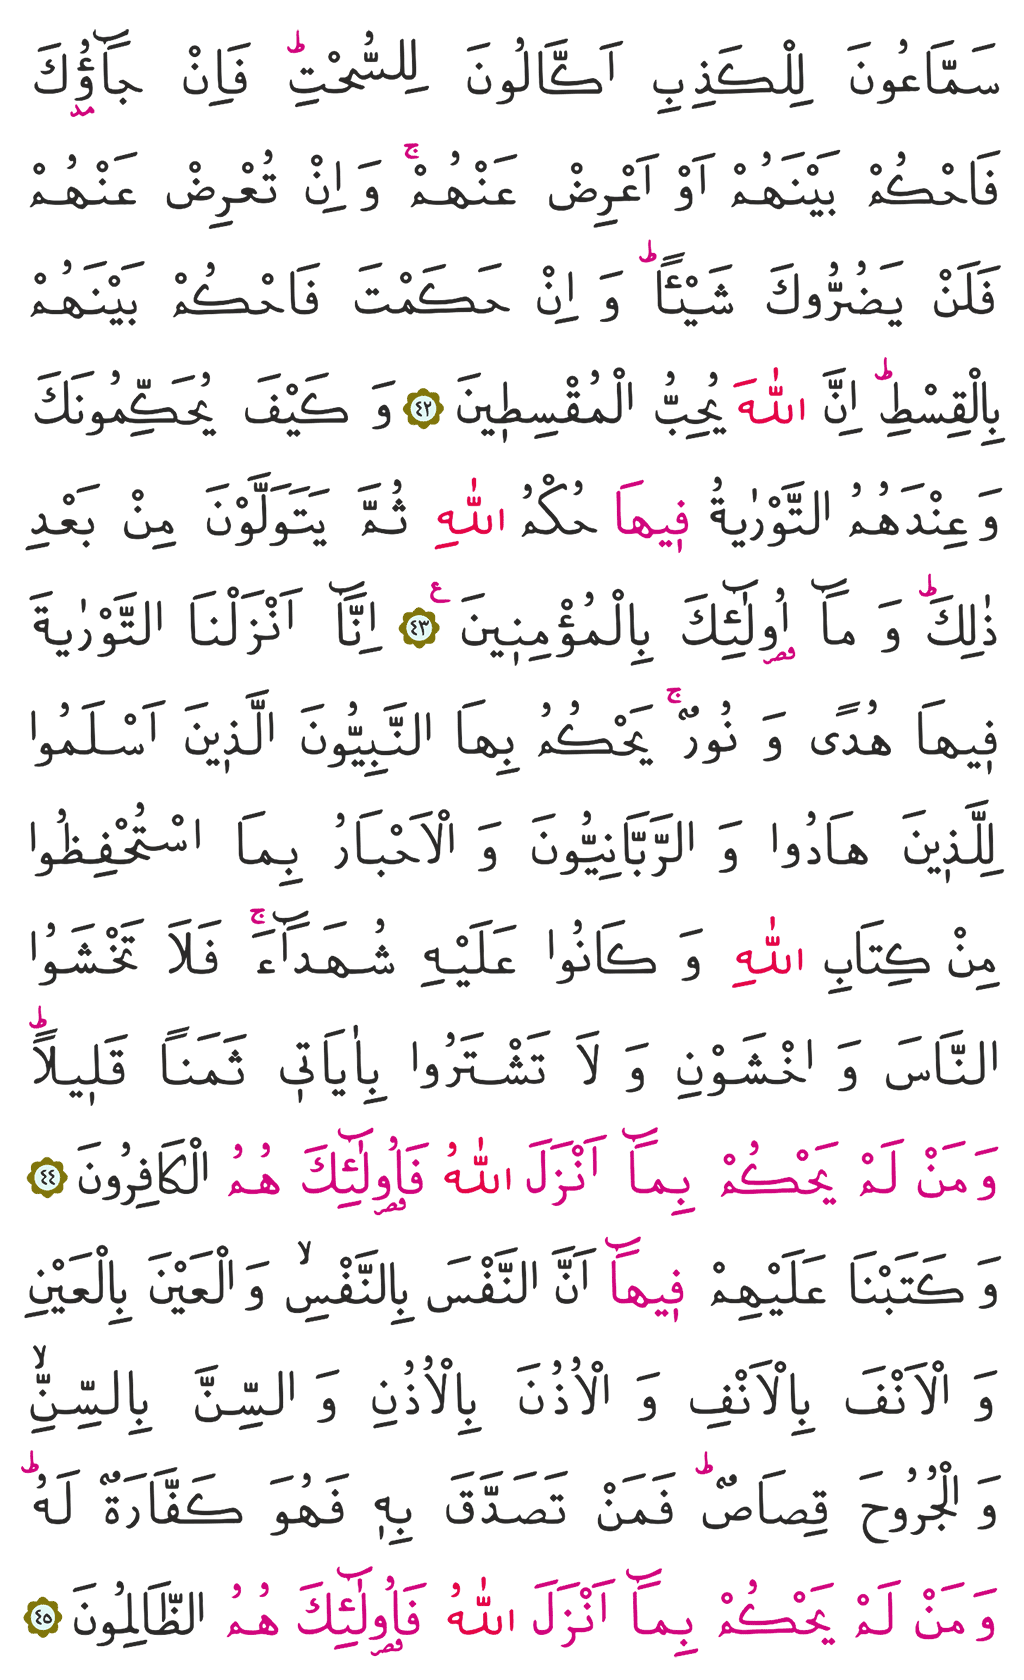 سَمَّاعُونَ لِلْكَذِبِ اَكَّالُونَ لِلسُّحْتِۜ فَاِنْ جَٓاؤُ۫كَ
فَاحْكُمْ بَيْنَهُمْ اَوْ اَعْرِضْ عَنْهُمْۚ وَ اِنْ تُعْرِضْ عَنْهُمْ
فَلَنْ يَضُرُّوكَ شَيْـًٔاۜ وَ اِنْ حَكَمْتَ فَاحْكُمْ بَيْنَهُمْ
بِالْقِسْطِۜ اِنَّ اللّٰهَ يُحِبُّ الْمُقْسِط۪ينَ ﴿٤٢﴾ وَ كَيْفَ يُحَكِّمُونَكَ
وَ عِنْدَهُمُ التَّوْرٰيةُ ف۪يهَا حُكْمُ اللّٰهِ ثُمَّ يَتَوَلَّوْنَ مِنْ بَعْدِ
ذٰلِكَۜ وَ مَٓا اُو۬لٰٓئِكَ بِالْمُؤْمِن۪ينَ۟ ﴿٤٣﴾ اِنَّٓا اَنْزَلْنَا التَّوْرٰيةَ
ف۪يهَا هُدًى وَ نُورٌۚ يَحْكُمُ بِهَا النَّبِيُّونَ الَّذ۪ينَ اَسْلَمُوا
لِلَّذ۪ينَ هَادُوا وَ الرَّبَّانِيُّونَ وَ الْاَحْبَارُ بِمَا اسْتُحْفِظُوا
مِنْ كِتَابِ اللّٰهِ وَ كَانُوا عَلَيْهِ شُهَدَٓاءَۚ فَلَا تَخْشَوُا
النَّاسَ وَ اخْشَوْنِ وَ لَا تَشْتَرُوا بِاٰيَات۪ي ثَمَنًا قَل۪يلًاۜ
وَ مَنْ لَمْ يَحْكُمْ بِمَٓا اَنْزَلَ اللّٰهُ فَاُو۬لٰٓئِكَ هُمُ الْكَافِرُونَ ﴿٤٤﴾
وَ كَتَبْنَا عَلَيْهِمْ ف۪يهَٓا اَنَّ النَّفْسَ بِالنَّفْسِۙ وَ الْعَيْنَ بِالْعَيْنِ
وَ الْاَنْفَ بِالْاَنْفِ وَ الْاُذُنَ بِالْاُذُنِ وَ السِّنَّ بِالسِّنِّۙ
وَ الْجُرُوحَ قِصَاصٌۜ فَمَنْ تَصَدَّقَ بِه۪ فَهُوَ كَفَّارَةٌ لَهُۜ
وَ مَنْ لَمْ يَحْكُمْ بِمَٓا اَنْزَلَ اللّٰهُ فَاُو۬لٰٓئِكَ هُمُ الظَّالِمُونَ ﴿٤٥﴾